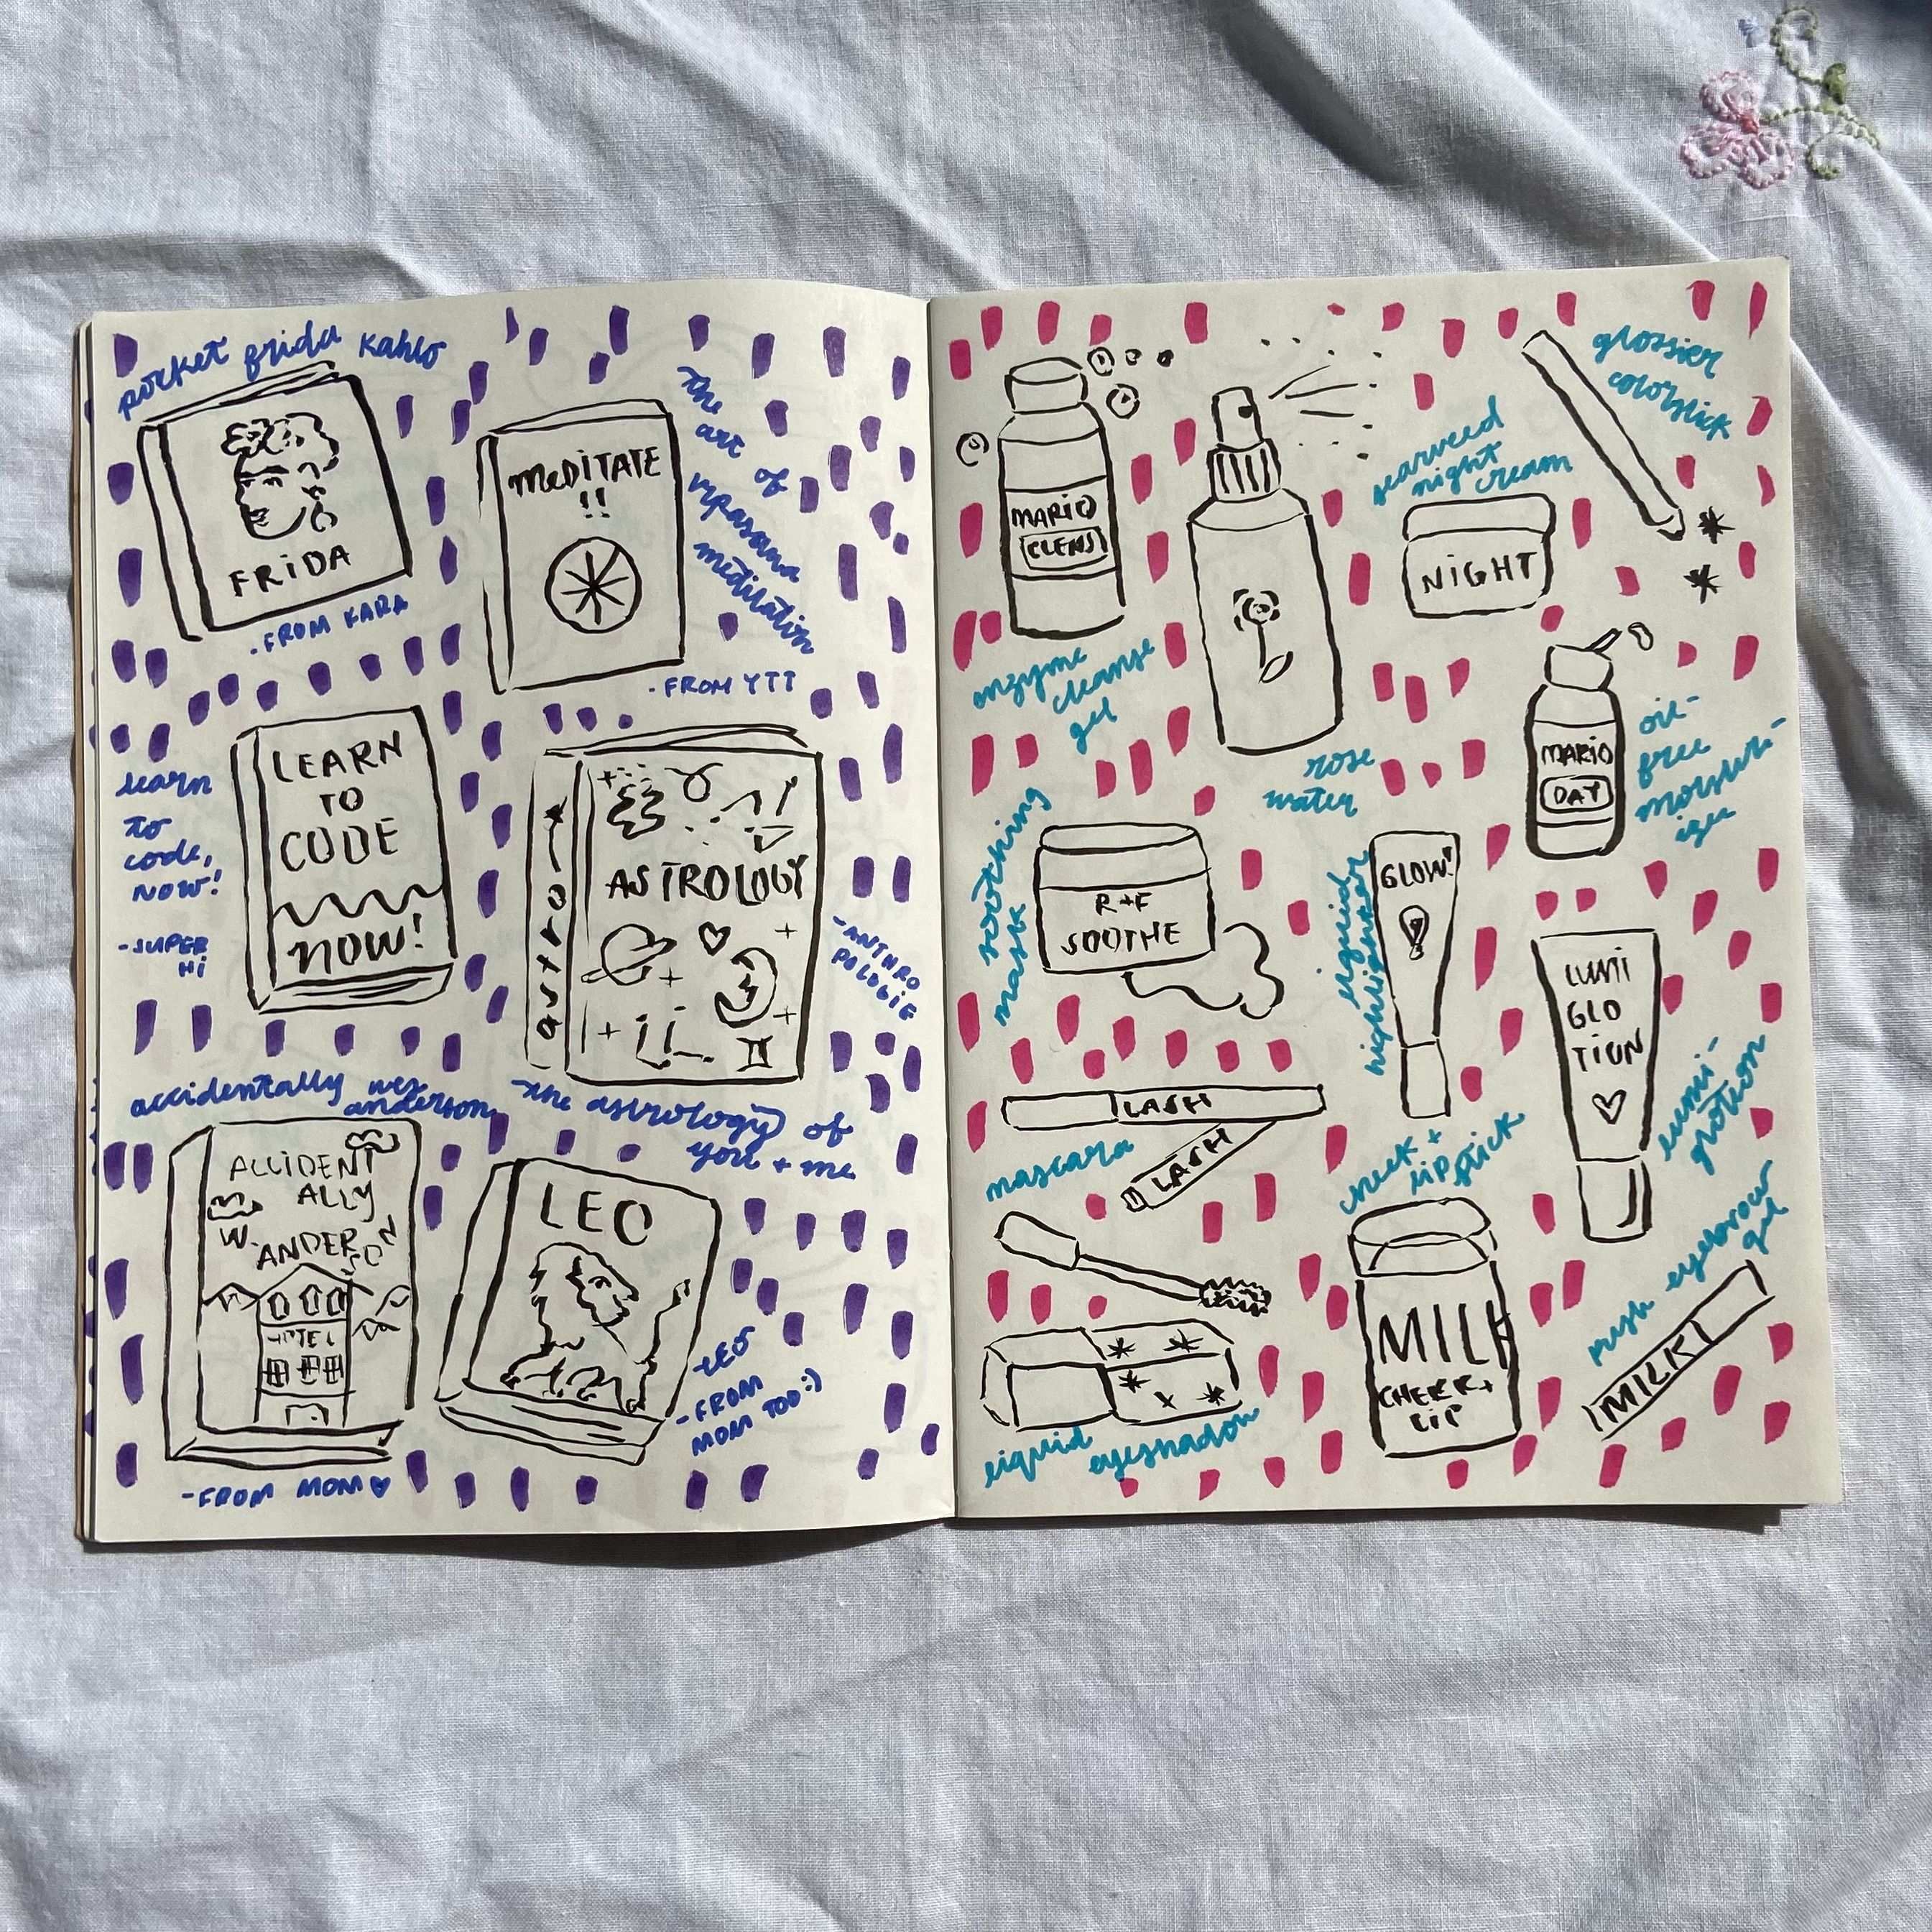 pocket frida kahlo
FRiDA
-FROM KARA
the
art
of
vipassana
meditation
MeDiTATE
!!
-FROM YTT
learn
to
code,
NOW!
-SUPER
Hi
LEARN
TO
CODE
NOW!
ASTROLOGY
-ANTHRO
POLOGiE
the astrology of
you + me
accidentally wes
anderson
ACCIDENT
ALLY
W.
ANDERSON
HOTEL
-FROM MOM
LEO
-LEO
-FROM
MOM TOO:)
MARiO
CLENS
enzyme
cleanse
gel
rose
water
seaweed
night
cream
NiGHT
glossier
colorslick
MARiO
DAY
oil-
free
soothing
mask
R+F
SOOTHE
liquid
highlighter
GLOW!
LUMi
GLO
TiON
lumi-
glotion
LASH
LASH
mascara
liquid
eyeshadow
cheek +
lipstick
MILK
CHEEK+
LiP
eyebrow
gel
MILK!